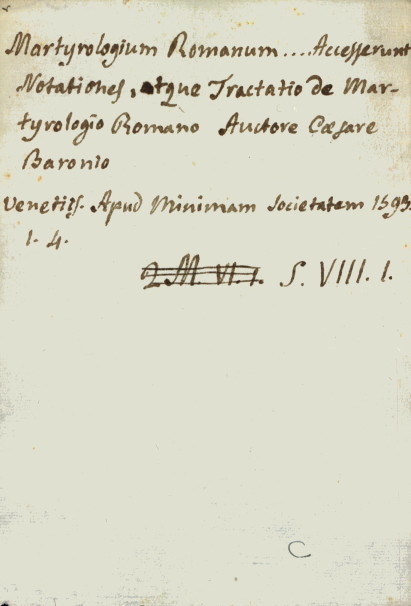 Martyrologium Romanum .... Accesserunt
Notationes, atque Tractatio de Mar-
tyrologio Romano Auctore Cæsare
Baronio
Venetijs. Apud Minimam Societatem 1593
1. 4.
2 M. VI. 1. S. VIII. 1.
C